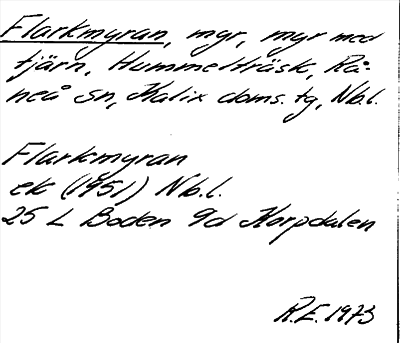 Flarkmyran, mgr, myr med
tjärn, Hummelträsk, Rå-
neå sn, Kalix doms. tg, Nb.l.
Flarkmyran
ek (1951) Nb.l.
25 L Boden 9d Korpdalen
R.E. 1973